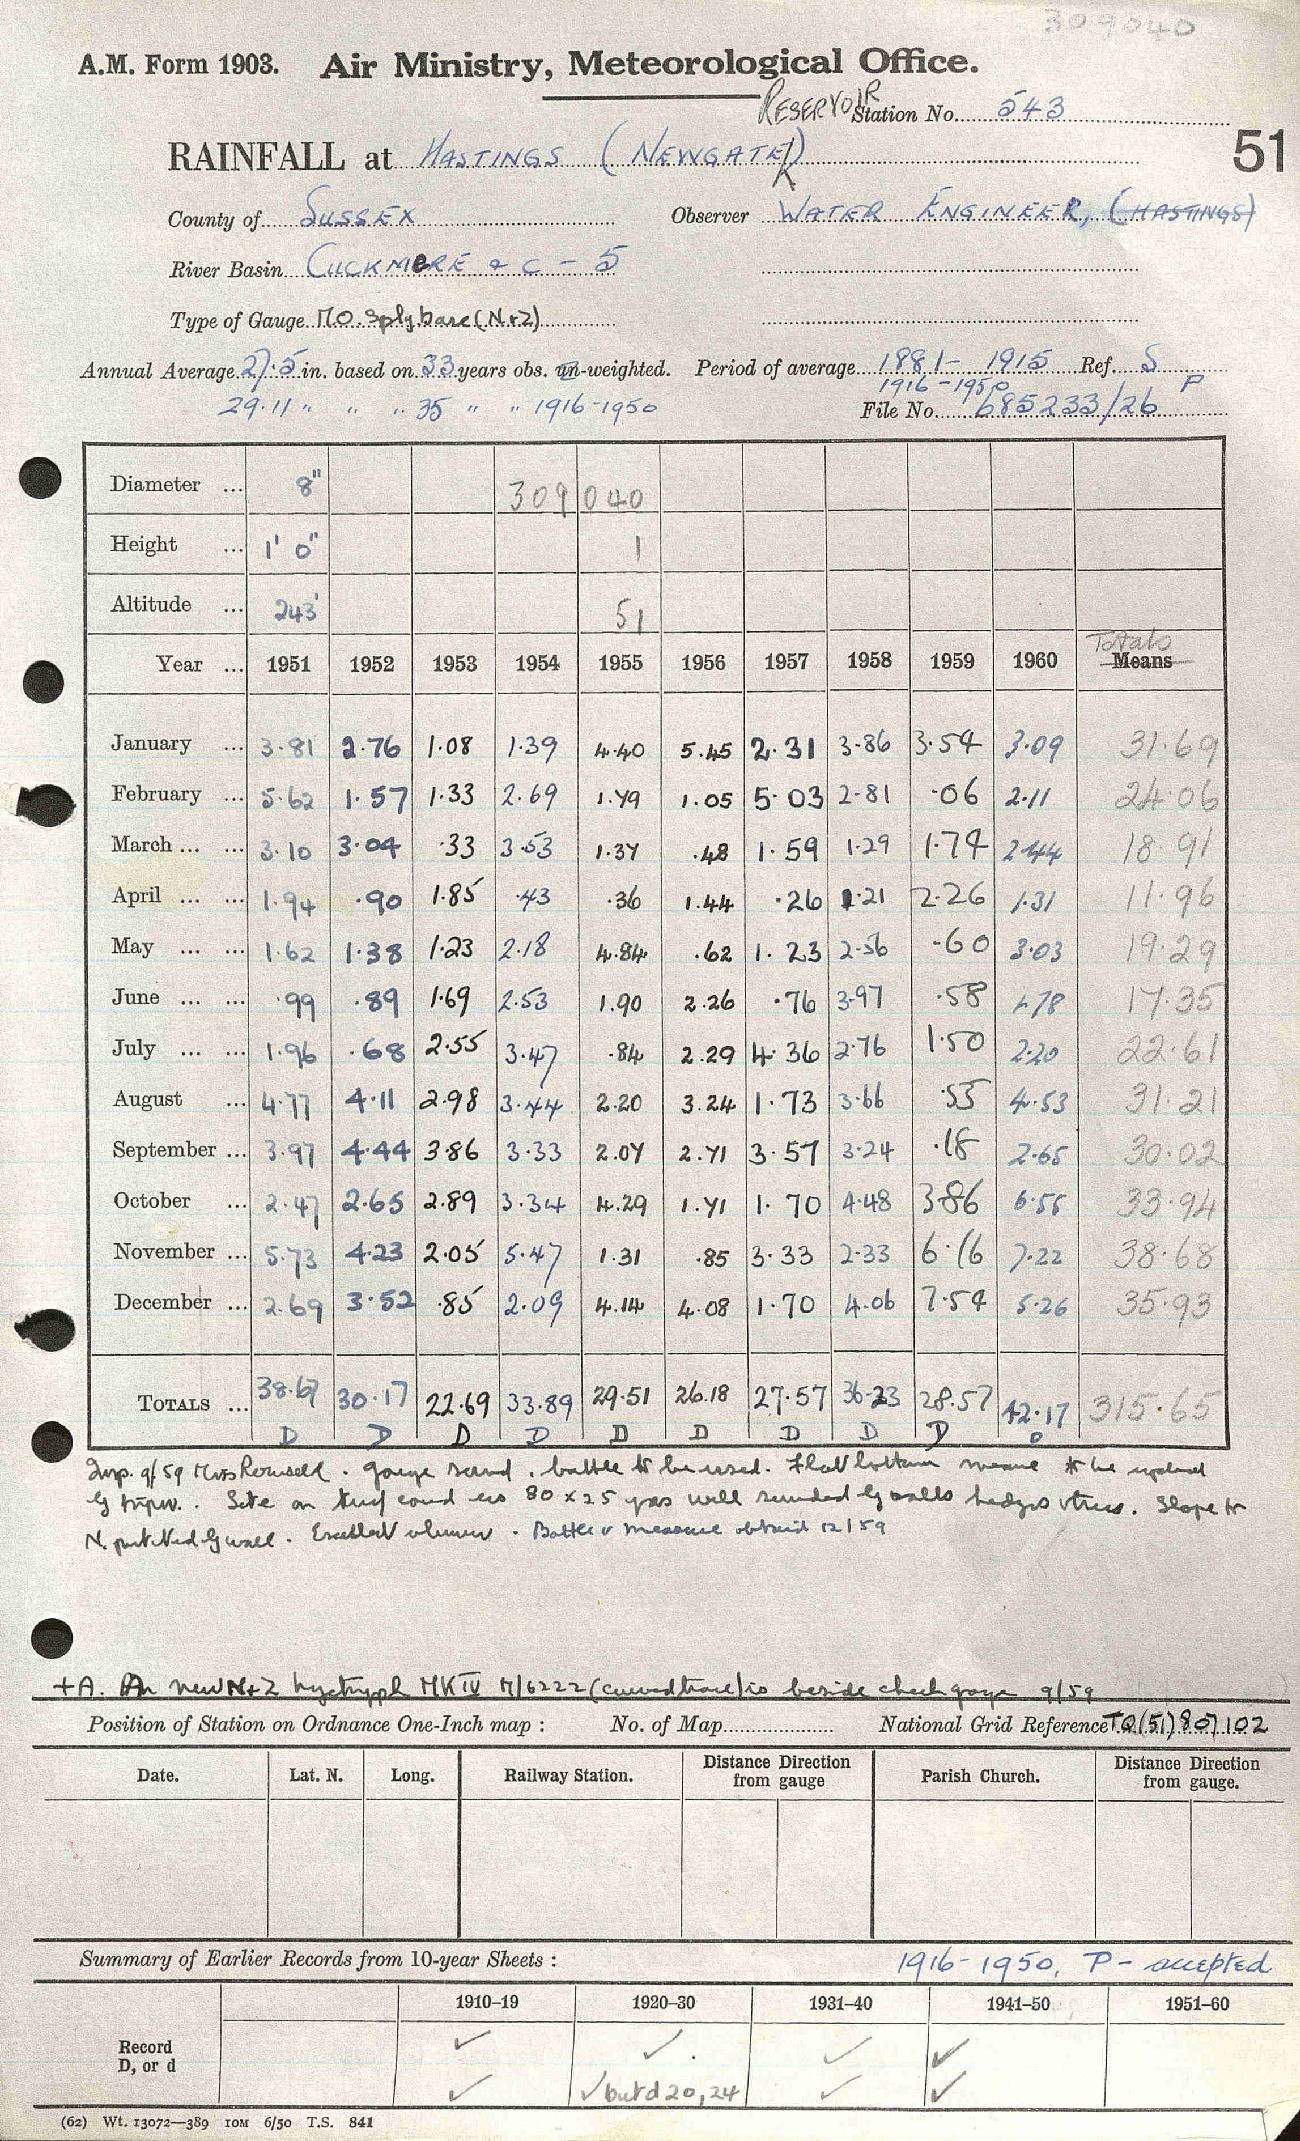 309040
A.M. Form 1903. Air Ministry, Meteorological Office.
RESERVOIR
Station No. 543
51
RAINFALL at HASTINGS (NEWGATE)
County of SUSSEX Observer WATER ENGINEER, (HASTINGS)
River Basin CUCKMERE & C - 5
Type of Gauge M.O. Splybase (N+Z)
Annual Average 27.5 in. based on 33 years obs. un-weighted. Period of average 1881-1915 Ref. S
1916-1950 P
29.11 " " " 35 " " 1916-1950 File No. 685233/26
Diameter ... 8" 309 040
Height ... 1' 0" 1
Altitude ... 243' 51
Totals
Year ... 1951 1952 1953 1954 1955 1956 1957 1958 1959 1960 Means
January ... 3.81 2.76 1.08 1.39 4.40 5.45 2.31 3.86 3.54 3.09 31.69
February ... 5.62 1.57 1.33 2.69 1.79 1.05 5.03 2.81 .06 2.11 24.06
March ... ... 3.10 3.04 .33 3.53 1.37 .48 1.59 1.29 1.74 2.44 18.91
April ... ... 1.94 .90 1.85 .43 .36 1.44 .26 1.21 2.26 1.31 11.96
May ... ... 1.62 1.38 1.23 2.18 4.84 .62 1.23 2.56 .60 3.03 19.29
June ... ... .99 .89 1.69 2.53 1.90 2.26 .76 3.97 .58 1.78 17.35
July ... ... 1.96 .68 2.55 3.47 .84 2.29 4.36 2.76 1.50 2.20 22.61
August ... 4.77 4.11 2.98 3.44 2.20 3.24 1.73 3.66 .55 4.53 31.21
September ... 3.97 4.44 3.86 3.33 2.07 2.71 3.57 3.24 .18 2.65 30.02
October ... 2.47 2.65 2.89 3.34 4.29 1.71 1.70 4.48 3.86 6.55 33.94
November ... 5.73 4.23 2.05 5.47 1.31 .85 3.33 2.33 6.16 7.22 38.68
December ... 2.69 3.52 .85 2.09 4.14 4.08 1.70 4.06 7.54 5.26 35.93
TOTALS ... 38.67 30.17 22.69 33.89 29.51 26.18 27.57 36.23 28.57 42.17 315.65
D D D D D D D D D D
Insp. 9/59 Miss . gauge sound . bottle to be used. Flat bottom measure to be
by . Site on turf 80 x 25 yds well by walls hedges & trees. Slope to
N. protected by wall. Excellent observer. Bottle & measure obtained 12/59
+A. new N+Z hyetograph MK IV M/6222 (curved trace) is beside check gauge 9/59
Position of Station on Ordnance One-Inch map : No. of Map National Grid Reference TQ(51) 807102
Date. Lat. N. Long. Railway Station. Distance Direction from gauge Parish Church. Distance Direction from gauge.
Summary of Earlier Records from 10-year Sheets : 1916-1950, P - accepted
1910–19 1920–30 1931–40 1941–50 1951–60
Record ✓ ✓ ✓ ✓
D, or d ✓ ✓ but d 20, 24 ✓ ✓
(62) Wt. 13072—389 10M 6/50 T.S. 841